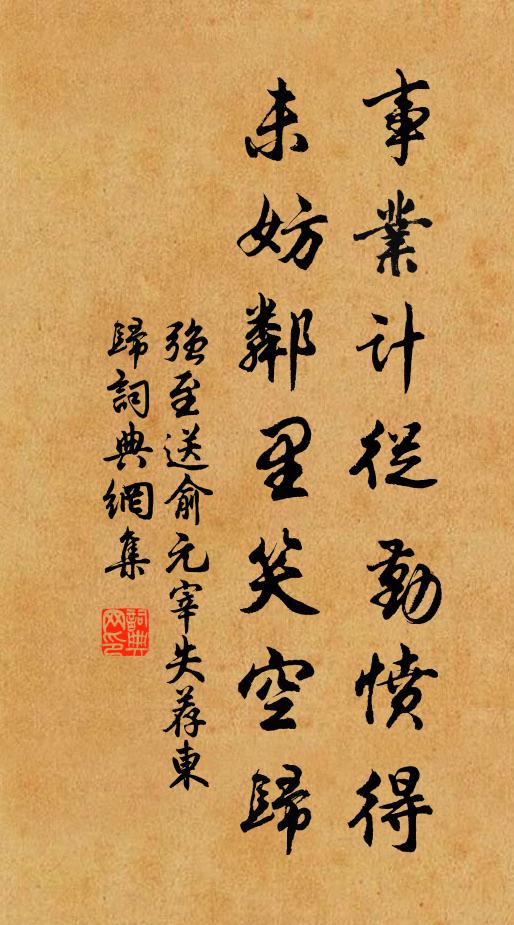 事業計從勤憤得
未妨鄰里笑空歸
強至送俞元宰失荐東
歸詞典網集
詞典网印